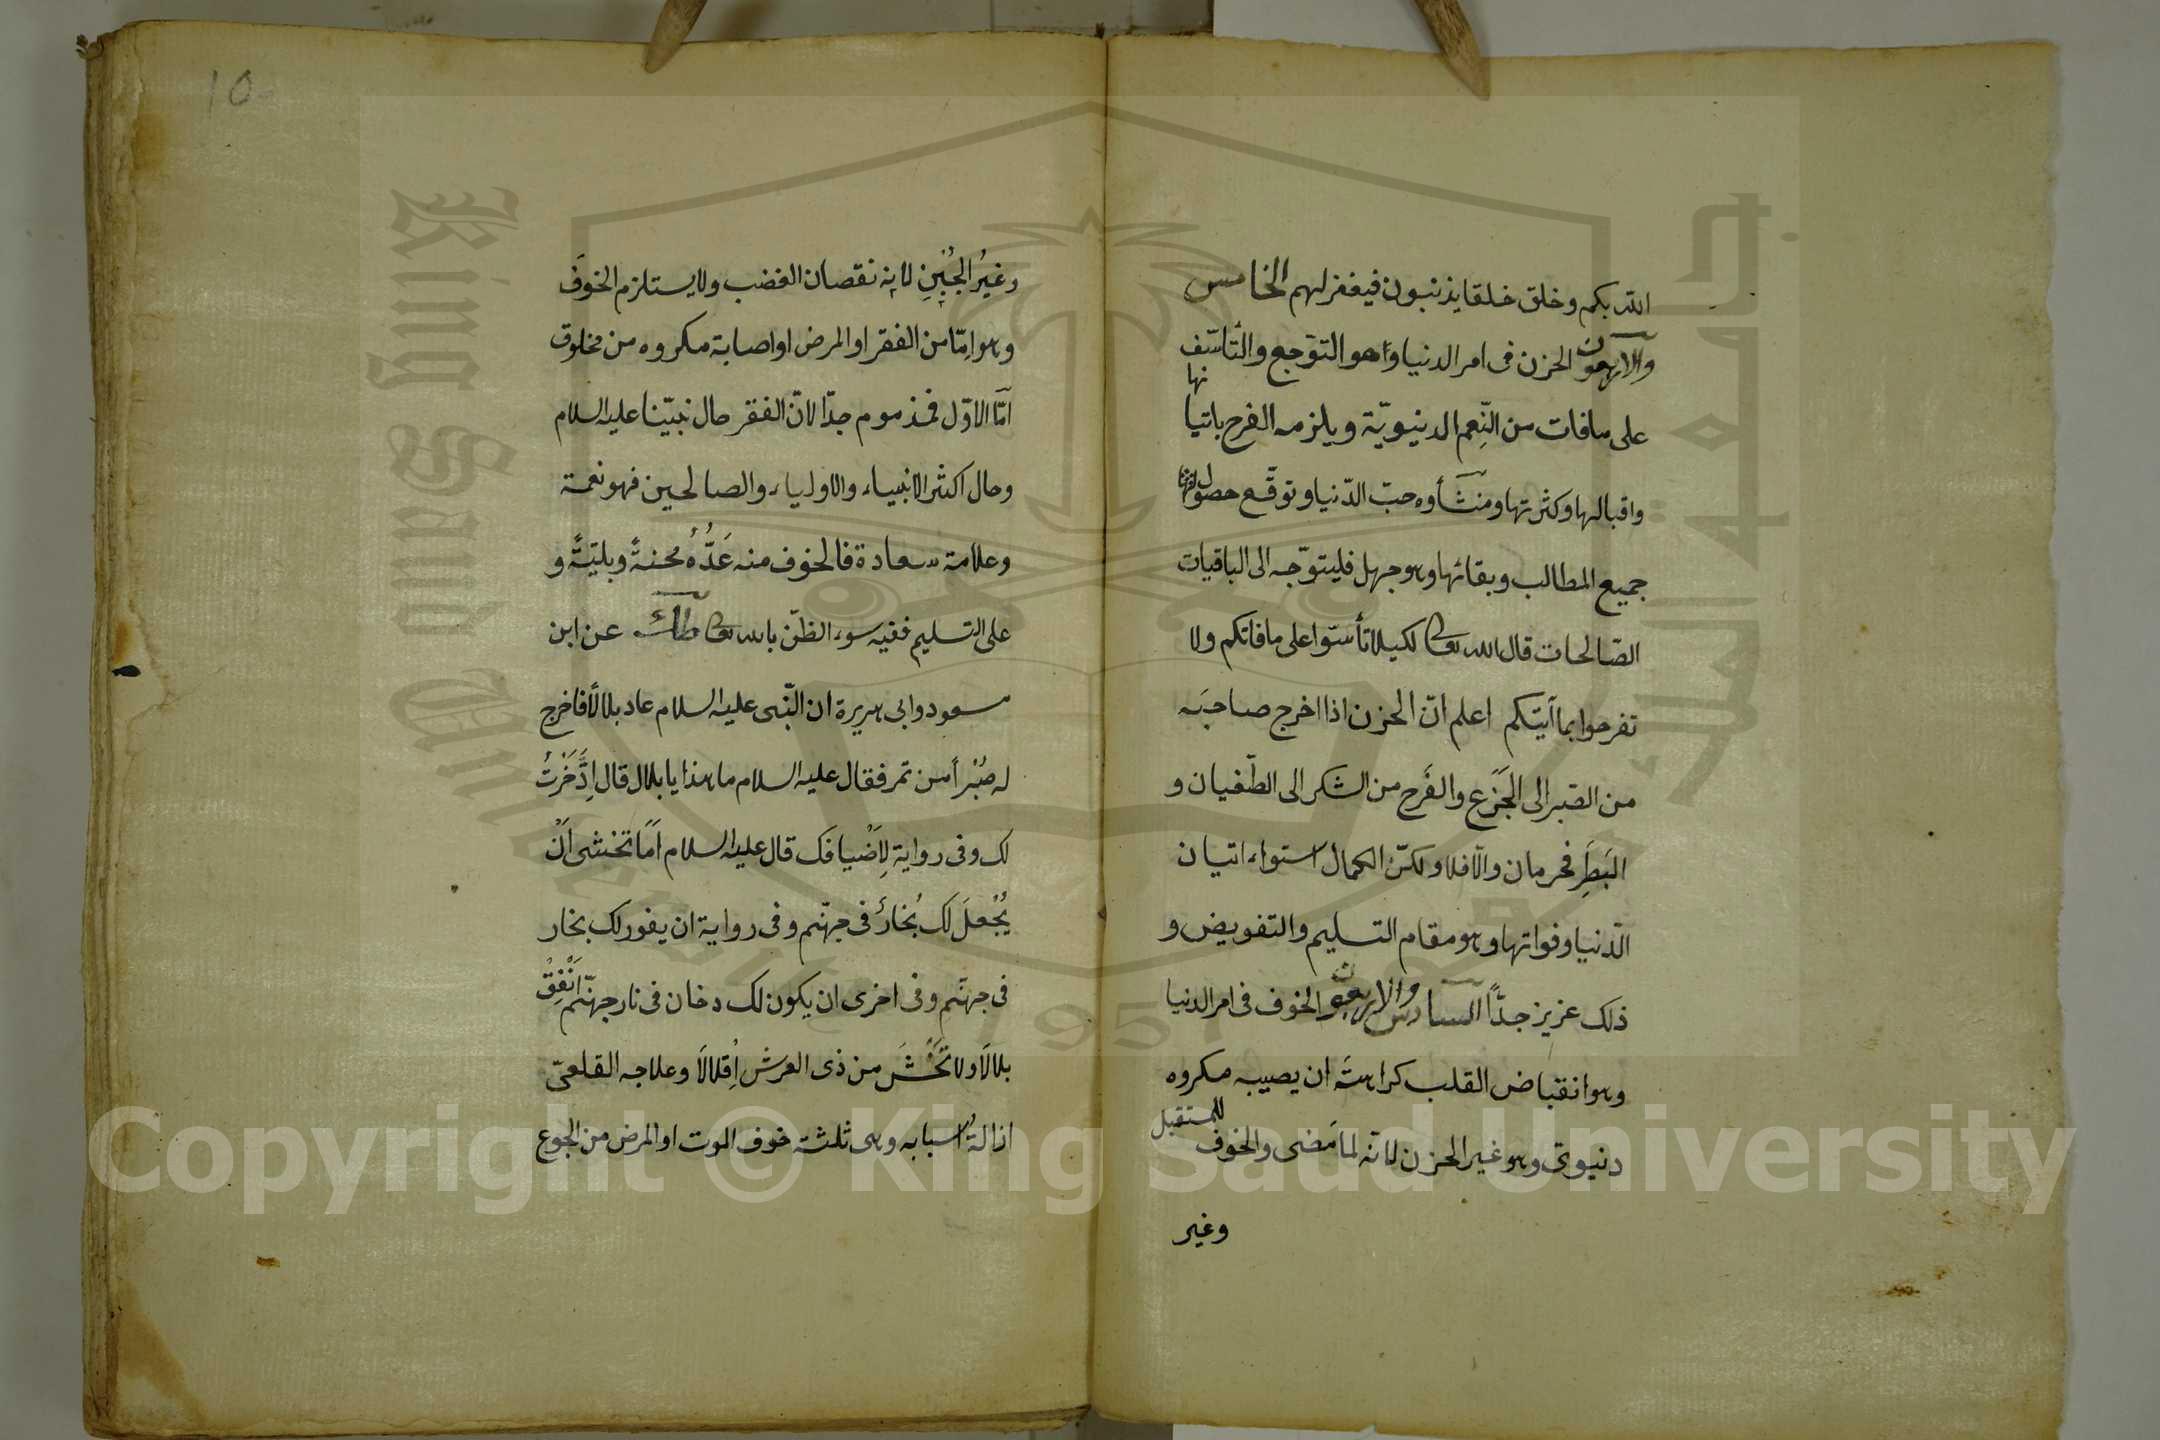 الله بكم وخلق خلقا يذنبون فيغفر لهم الخامس
والاربعون الحزن فى امر الدنيا وهو التوجع والتأسّف
على مافات من النّعم الدنيويّة ويلزمه الفرح باتيانها
واقبالها وكثرتها ومنشأوه حبّ الدّنيا وتوقّع حصول
جميع المطالب وبقائها وهو جهل فليتوّجه الى الباقيات
الصّالحات قال الله تعالى لكيلا تأسَوا على ما فاتكم ولا
تفرحوا بما آتيكم اعلم انّ الحزن اذا اخرج صاحبَه
من الصّبر الى الجَزَع والفَرح من الشكر الى الطّغيان و
البَطَرِ فحرمان والّا فلا ولكنّ الكمال استواء اتيان
الدّنيا وفواتها وهو مقام التسليم والتفويض و
ذلك عزيز جدًّا السّادس والاربعون الخوف فى امر الدنيا
وهو انقباض القلب كراهَة ان يصيبه مكروه
دنيوىّ وهو غير الحزن لانّه لما مَضى والخوف للمستقبل
وغير
وغيرُ الجُبْنِ لانه نقصان الغضب ولا يستلزم الخوفَ
وهو امّا من الفقر او المرض او اصابة مكروه من مخلوق
امّا الاوّل فمذموم جدّا لانّ الفقر حال نبيّنا عليه السلام
وحال اكثر الانبياء والاولياء والصالحين فهو نعمة
وعلامة سعادة فالخوف منه عَدُّهُ محنةً وبليّةً و
على التسليم ففيه سوء الظنّ بالله تعالى طك عن ابن
مسعود وابى هريرة ان النّبى عليه السلام عاد بلالًا فاخرج
له صُبْراً من تمر فقال عليه السلام ما هذا يا بلال قال اِدَّخَرْتُ
لك وفى رواية لِاَضْيافك قال عليه السلام اَمَا تخشى اَنْ
يُجْعلَ لك بُخارٌ فى جهنّم وفى رواية ان يفور لك بخار
فى جهنّم وفى اخرى ان يكون لك دخان فى نار جهنّم اَنْفِقْ
بلالَا ولا تَخْشَ من ذى العرش اِقلالَا وعلاجه القلعىّ
ازالةُ اسبابه وهى ثلثة خوف الموت او المرض من الجوع
10
King Saud University
1957
Copyright © King Saud University